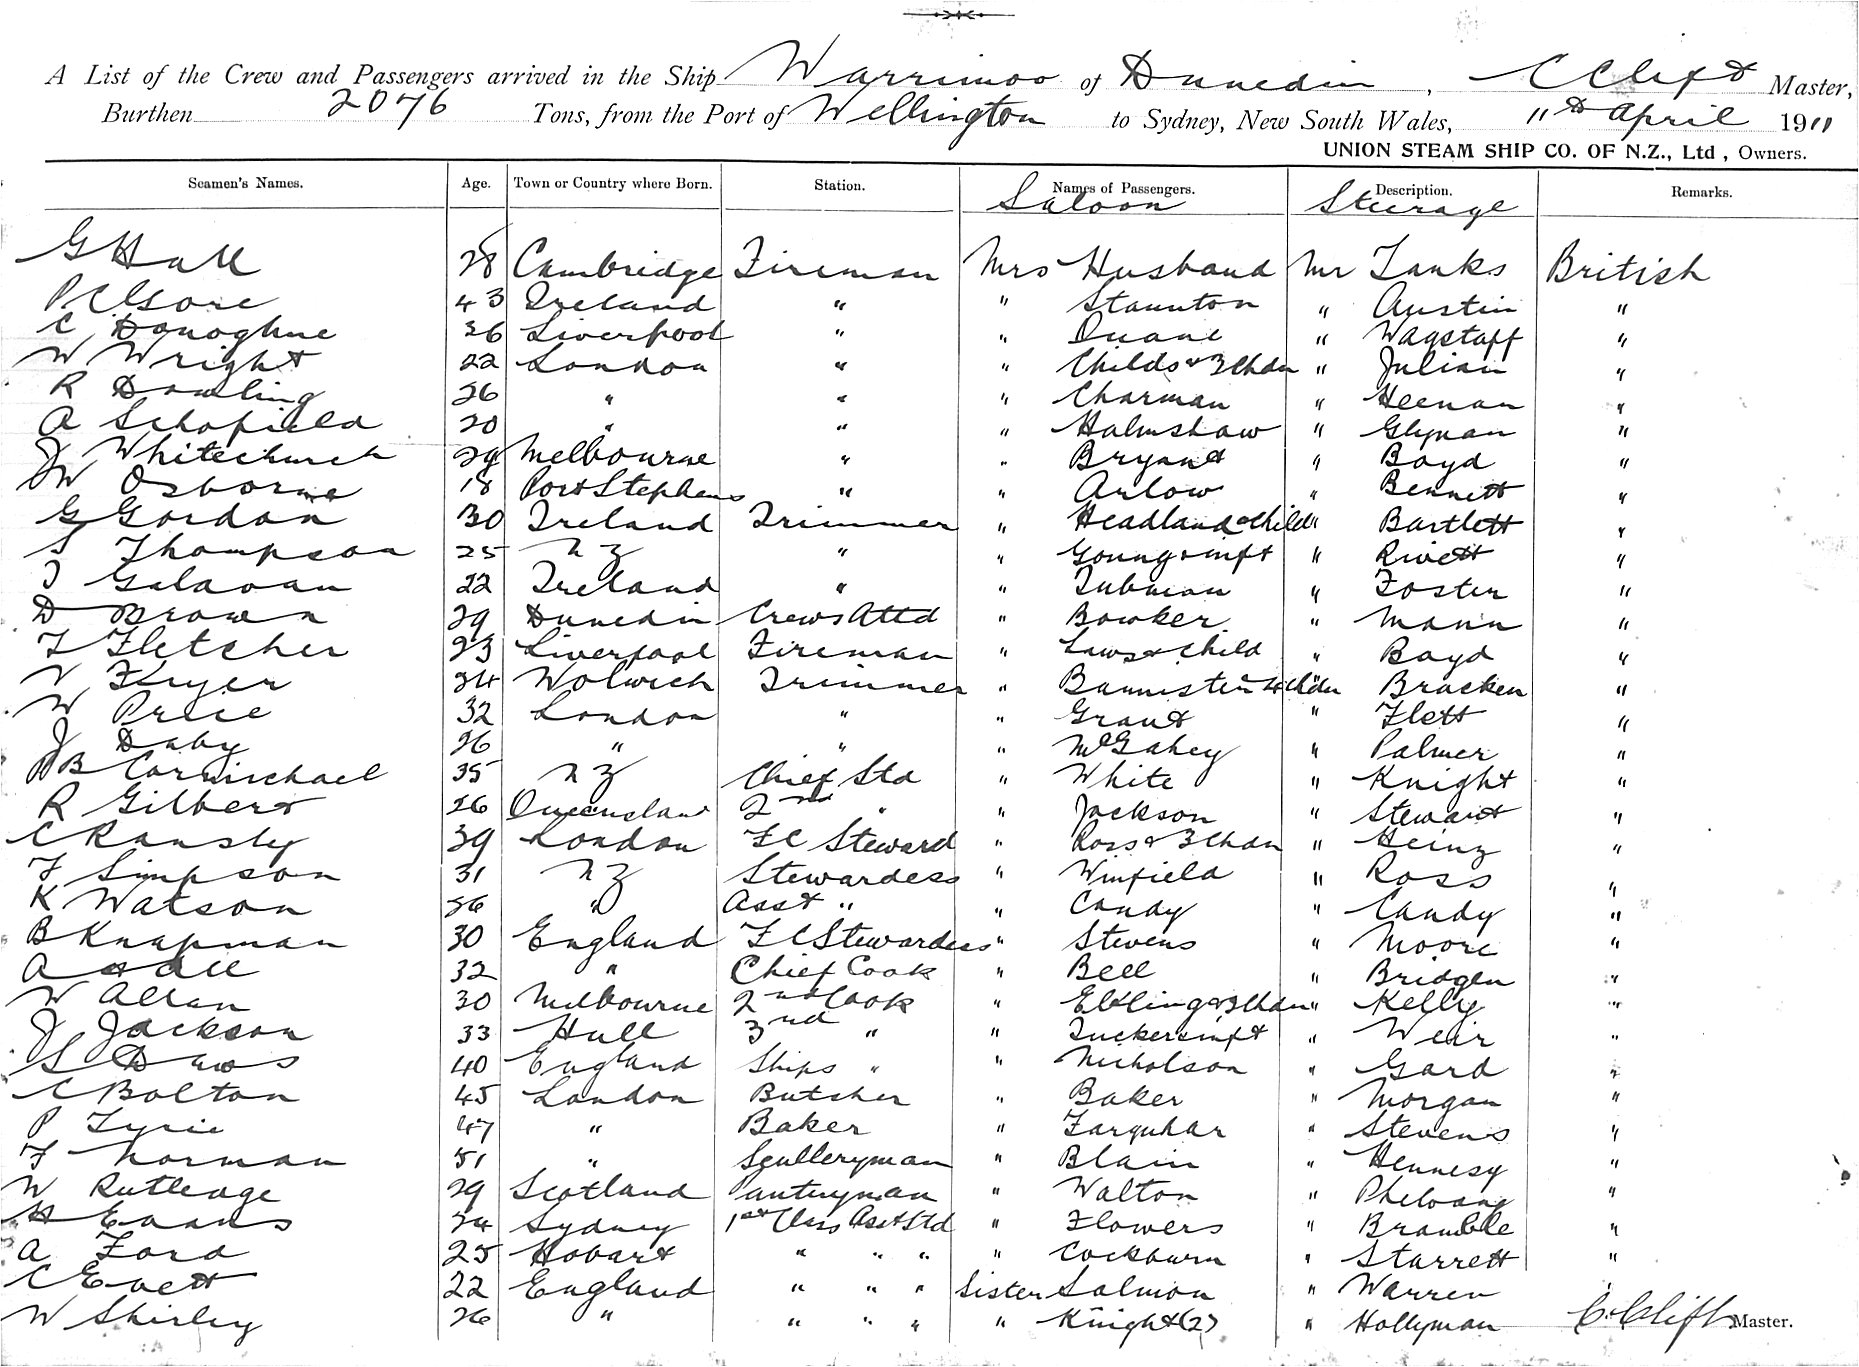 A List of the Crew and Passengers arrived in the Ship Warrimoo of Dunedin, C Clift Master,
Burthen 2076 Tons, from the Port of Wellington to Sydney, New South Wales, 11th April 1911
UNION STEAM SHIP CO. OF N.Z., Ltd, Owners.
Seamen's Names. Age. Town or Country where Born. Station. Names of Passengers. Description. Remarks.
Saloon Steerage
G Hall 28 Cambridge Fireman Mrs Husband Mr Tanks British
P C Gore 43 Ireland " " Staunton " Austin "
C Donoghue 36 Liverpool " " Duane " Wagstaff "
W Wright 22 London " " Childs & 3 Chdn " Julian "
R Dowling 26 " " " Charman " Heenan "
A Schofield 20 " " " Halmshaw " Glynan "
J Whitechurch 29 Melbourne " " Bryant " Boyd "
J W Osborne 18 Port Stephens " " Arlow " Bennett "
G Gordon 30 Ireland Trimmer " Headland & Child " Bartlett "
S Thompson 25 N Z " " Young & inft " Rivett "
J 22 Ireland " " Tubman " Foster "
D Brown 29 Dunedin Crews Attd " Bowker " Mann "
F Fletcher 23 Liverpool Fireman " Laws & Child " Boyd "
V Fryer 24 Wolwich Trimmer " Bannister & 4 Chdn " Bracken "
W Price 32 London " " Grant " Flett "
J Daby 26 " " " McGahey " Palmer "
B Carmichael 35 N Z Chief Std " White " Knight "
R Gilbert 26 Queensland 2nd " " Jackson " Stewart "
C Ransly 39 London F C Steward " Ross & 3 Chdn " Heinz "
F Simpson 31 N Z Stewardess " Winfield " Ross "
K Watson 36 " Asst " " Candy " Candy "
B Knapman 30 England F C Stewardess " Stevens " Moore "
A 32 " Chief Cook " Bell " Bridgen "
W Allan 30 Melbourne 2nd Cook " Ebling & 3 Chdn " Kelly "
J Jackson 33 Hull 3nd " " Tucker & inft " Weir "
S Daws 40 England Ships " " Nicholson " Gard "
C Bolton 45 London Butcher " Baker " Morgan "
P Tyrie 47 " Baker " Farquhar " Stevens "
F Norman 51 " Sculleryman " Blain " Hennesy "
W Rutledge 29 Scotland Pantryman " Walton " "
H Evans 24 Sydney 1st Class Asst Std " Flowers " Bramble "
A Ford 25 Hobart " " " " Cockburn " Starrett "
C Evett 22 England " " " Sister Salmon " Warren "
W Shirley 26 " " " " " Knight (2) " Hollyman C. Clift Master.